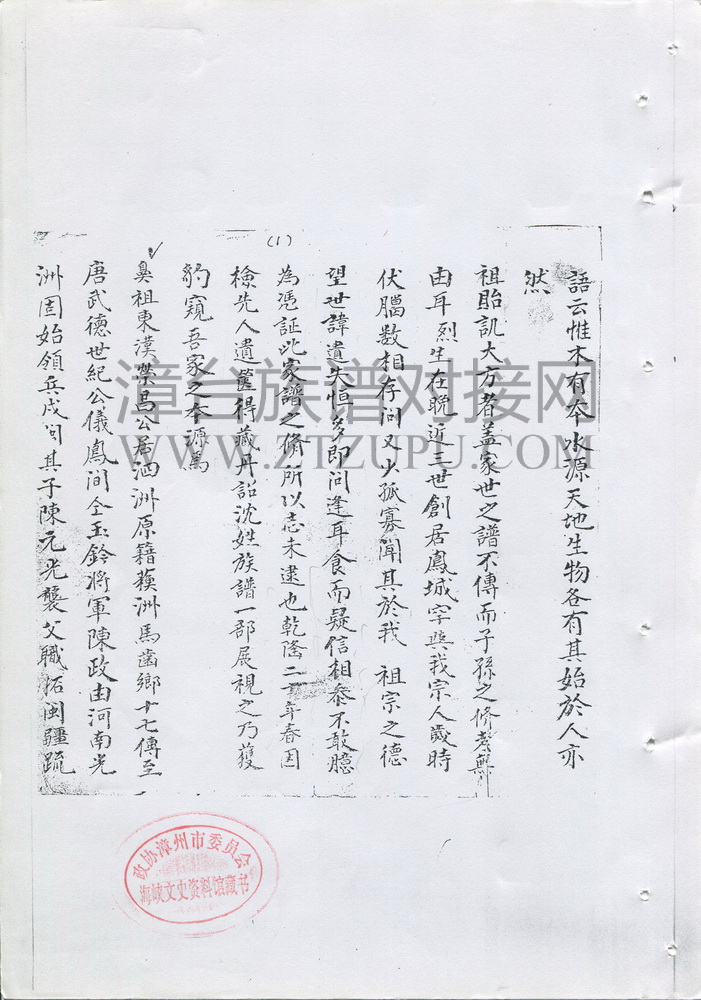 (1)
語云惟木有本水源天地生物各有其始於人亦
然
祖貽訊大方者盖家世之譜不傳而子孫之修考無
由耳烈生在晚近三世創居鳳城罕與我宗人歲時
伏臘数相存问又少孤寡聞其於我 祖宗之德
望世諱遺失恒多即间逢耳食而疑信相叅不敢臆
為憑証此家譜之脩所以志未逮也乾隆二 年春因
檢先人遺篋得藏丹詔沈姓族譜一部展視之乃獲
豹窺吾家之本源焉
鼻祖東漢 公居泗洲原籍蘓洲馬齒鄉十七傳至
唐武德世紀公儀鳳间仝玉鈐將軍陳政由河南光
洲固始領兵戍闽其子陳元光襲父職拓闽疆
漳台族谱对接网
WWW.ZTZUPU.COM
政协漳州市委员会
海峡文史资料馆藏书